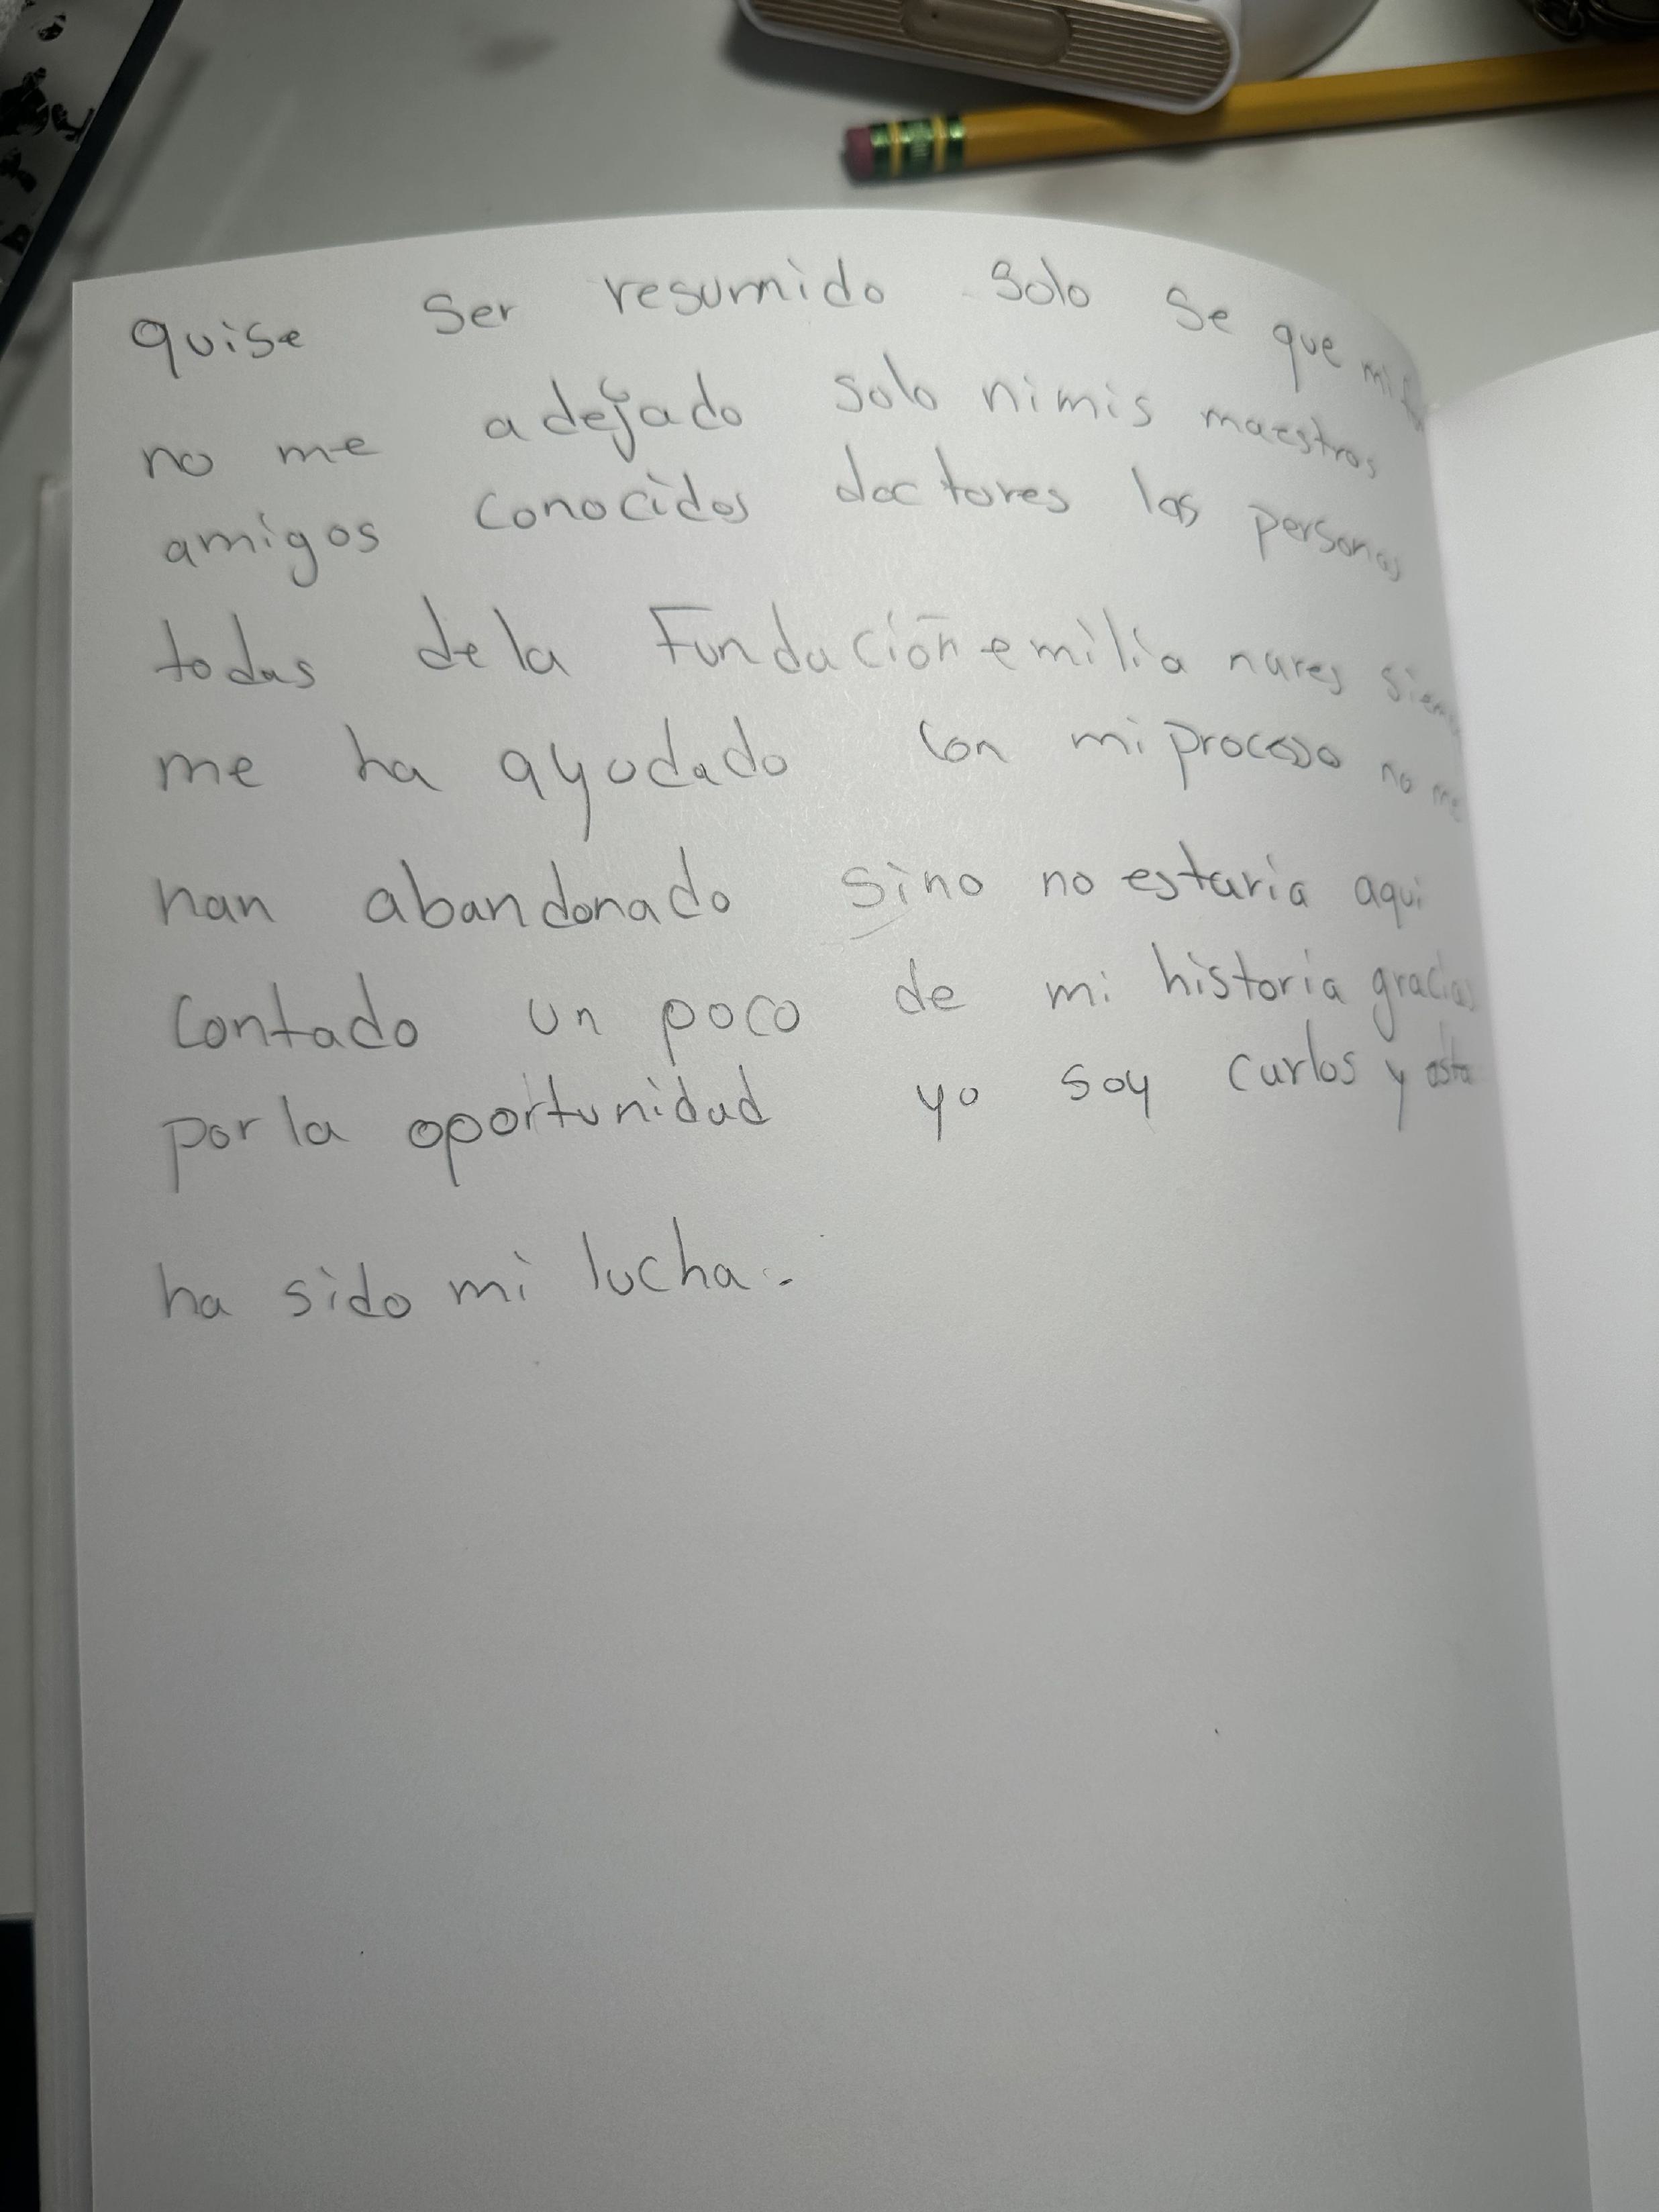 quise ser resumido solo se que mi
no me a dejado solo nimis maestros
amigos conocidos doctores las personas
todas dela Fundación emilia nares
me ha ayudado con mi proceso no me
han abandonado sino no estaria aqui
contado un poco de mi historia gracias
por la oportunidad yo soy carlos y esta
ha sido mi lucha.